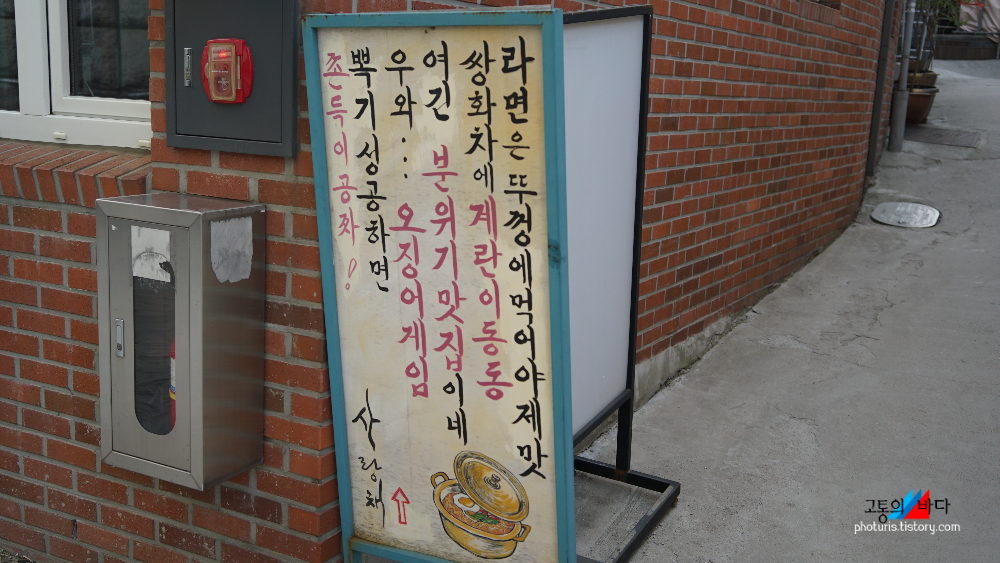 라면은뚜껑에먹어야제맛
쌍화차에계란이동동
여긴 분위기맛집이네
우와:: 오징어게임
뽁기성공하면
쫀득이공짜!
사랑채
고통의 바다
photuris.tistory.com